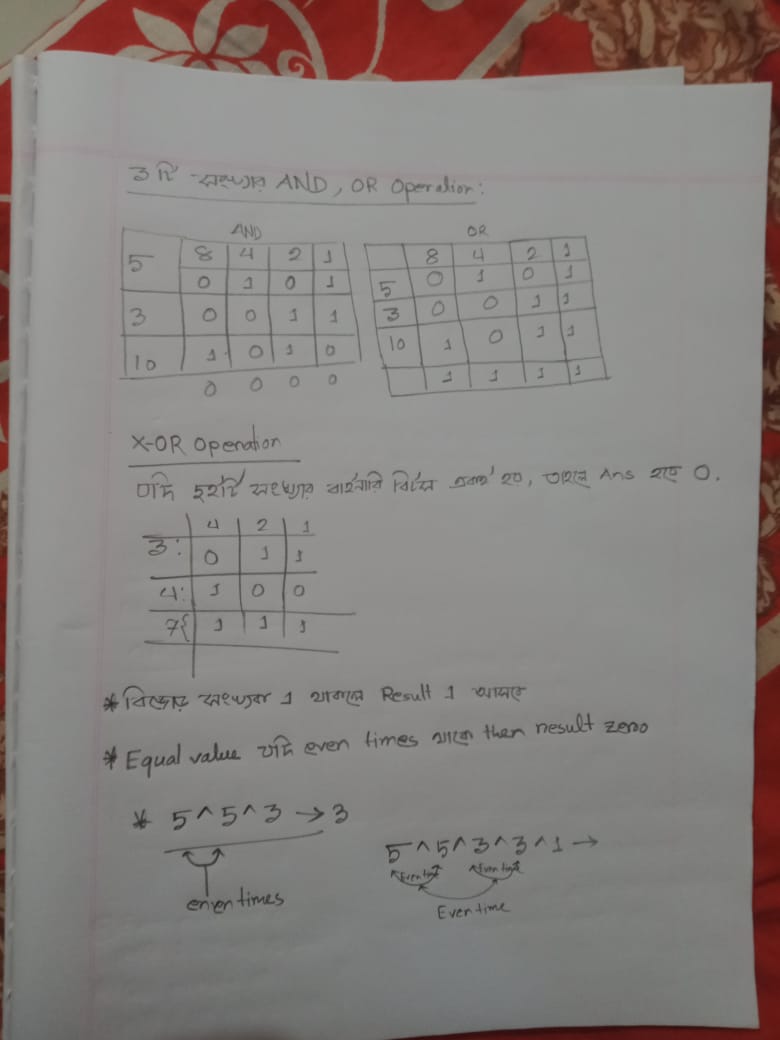 3 টি সংখ্যার AND, OR Operation:
AND
5 8 4 2 1
0 1 0 1
3 0 0 1 1
10 1 0 1 0
0 0 0 0
OR
8 4 2 1
5 0 1 0 1
3 0 0 1 1
10 1 0 1 1
1 1 1 1
X-OR Operation
যদি দুইটি সংখ্যার বাইনারি বিটস একই হয়, তাহলে Ans হবে 0.
4 2 1
3: 0 1 1
4: 1 0 0
7{ 1 1 1
* বিজোড় সংখ্যক 1 থাকলে Result 1 আসবে
* Equal value যদি even times থাকে then result zero
* 5^5^3 → 3
even times
5^5^3^3^1 →
Even time Even time
Even time